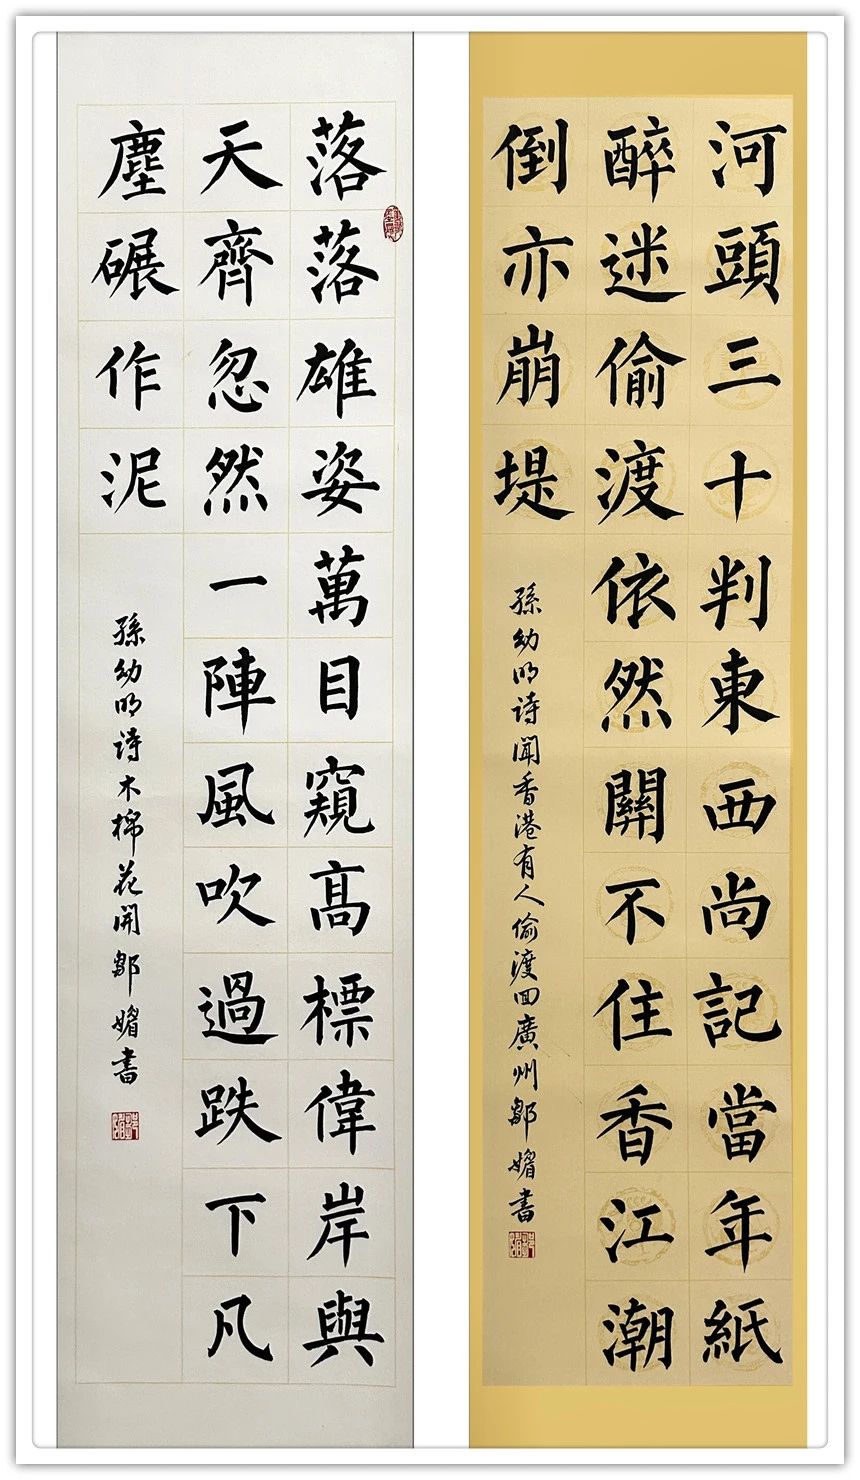 河頭三十判東西尚記當年紙
醉迷偷渡依然關不住香江潮
倒亦崩堤
孫幼明詩聞香港有人偷渡回廣州鄒媚書
落落雄姿萬目窺高標偉岸與
天齊忽然一陣風吹過跌下凡
塵碾作泥
孫幼明詩木棉花開鄒媚書